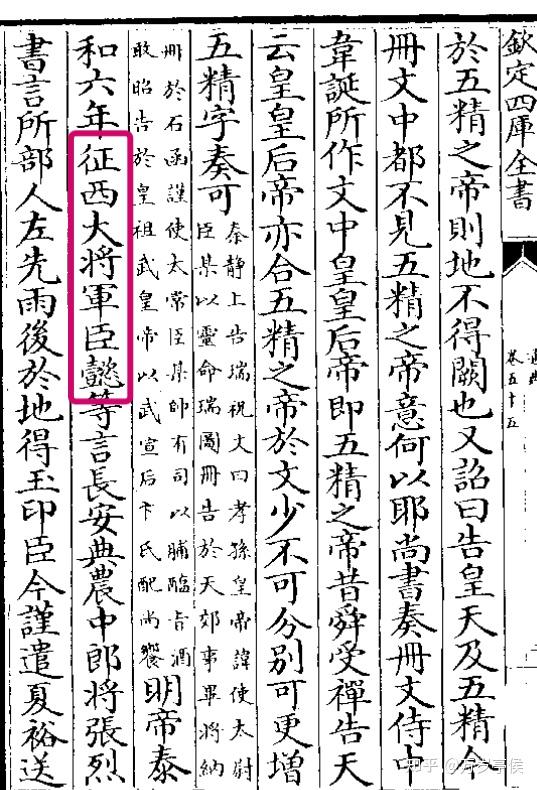 欽定四庫全書
卷五十五
於五精之帝則地不得闕也又詔曰告皇天及五精今
冊文中都不見五精之帝意何以耶尚書奏冊文侍中
韋誕所作文中皇皇后帝即五精之帝昔舜受禪告天
云皇皇后帝亦合五精之帝於文少不可分别可更增
五精字奏可
秦靜上告瑞祝文曰孝孫皇帝諱使太尉
臣某以靈命瑞圖冊告於天郊事畢將納
冊於石函謹使太常臣某帥有司以脯醢旨酒
敢昭告於皇祖武皇帝以武宣后卞氏配尚饗
明帝泰
和六年征西大將軍臣懿等言長安典農中郎將張烈
書言所部人左先雨後於地得玉印臣今謹遣夏裕送
知乎